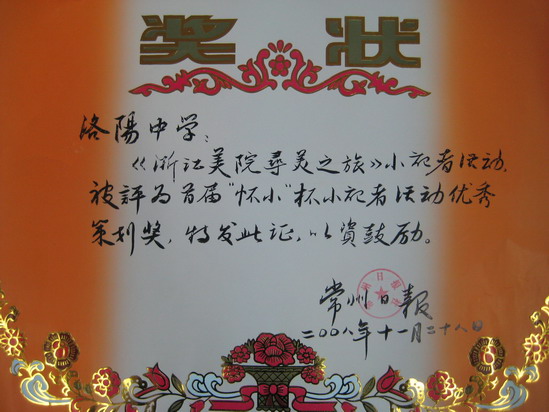 奖状
洛陽中学：
《浙江美院尋美之旅》小记者活动，
被評为首届“怀小”杯小记者活动优秀
策划奖，特发此证，以資鼓励。
常州日報
二〇〇八年十一月二十八日